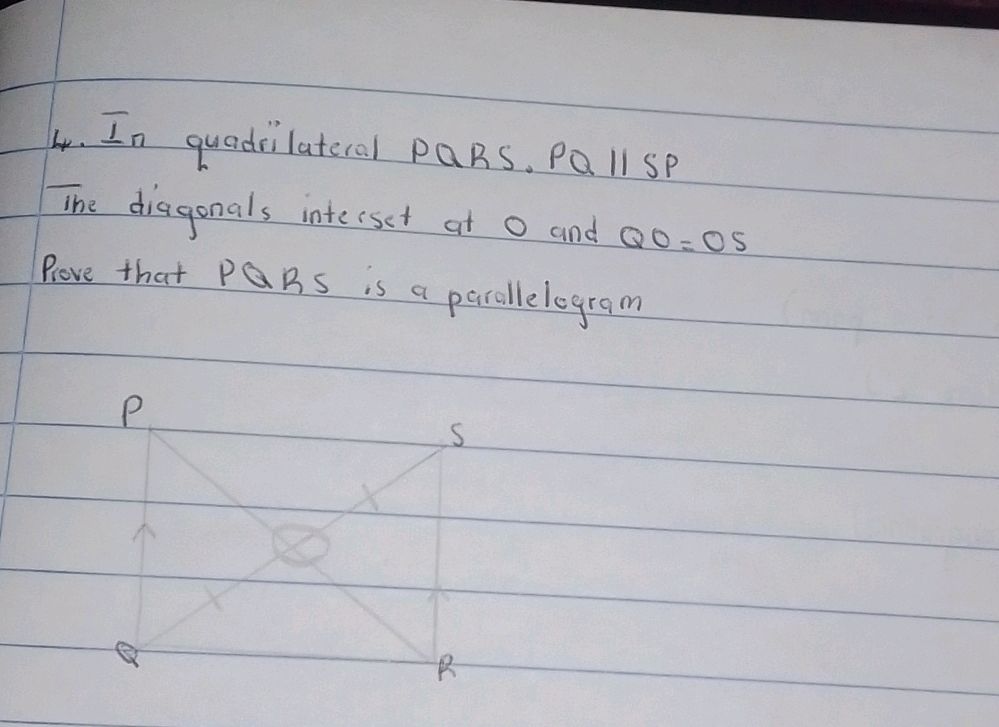 4. In quadrilateral PQRS. PQ || SP
The diagonals interset at O and QO = OS
Prove that PQRS is a parallelogram
P
S
Q
R